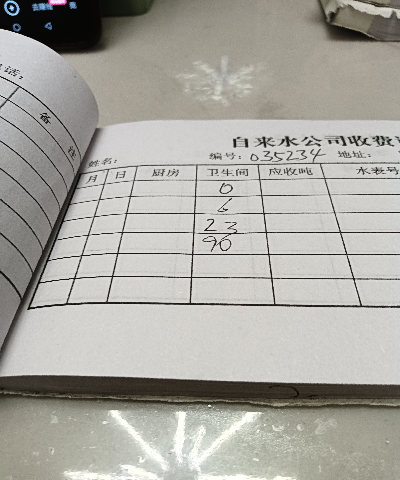 备
注
自来水公司收费
姓名： 编号：035234 地址：
月 日 厨房 卫生间 应收吨 水表号
0
6
23
90